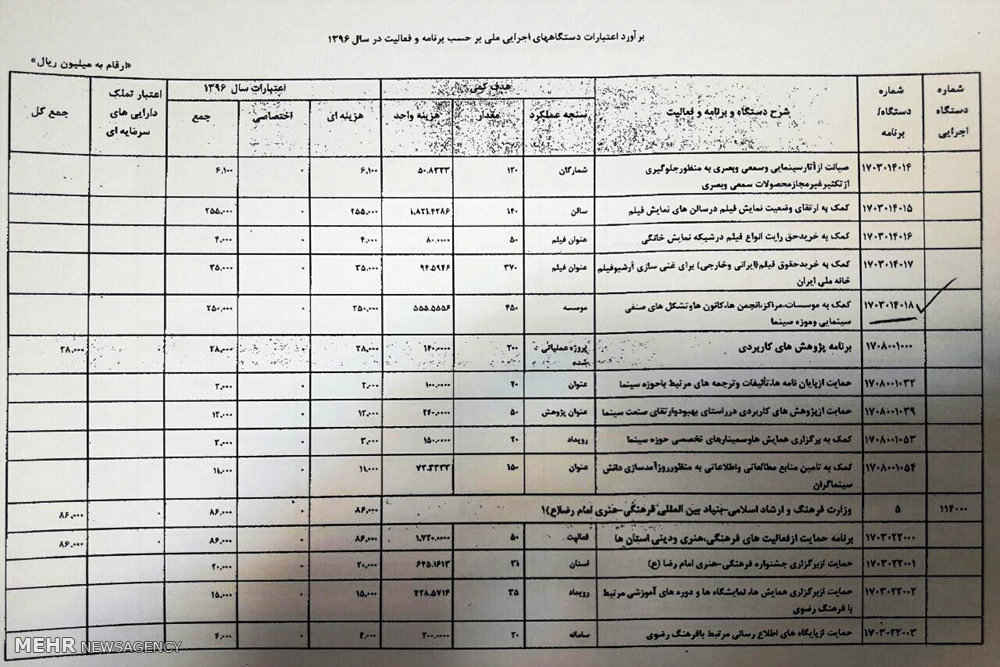 برآورد اعتبارات دستگاههای اجرایی ملی بر حسب برنامه و فعالیت در سال ۱۳۹۶
«ارقام به میلیون ریال»
شماره دستگاه اجرایی | شماره دستگاه/ برنامه | شرح دستگاه و برنامه و فعالیت | هدف کمی | اعتبارات سال ۱۳۹۶ | اعتبار تملک دارایی های سرمایه ای | جمع کل
سنجه عملکرد | مقدار | هزینه واحد | هزینه ای | اختصاصی | جمع
۱۷۰۳۰۱۴۰۱۴ | صیانت از آثارسینمایی وسمعی وبصری به منظورجلوگیری | شمارگان | ۱۲۰ | ۵۰.۸۳۳۳ | ۶,۱۰۰ | ۰ | ۶,۱۰۰
ازتکثیرغیرمجازمحصولات سمعی وبصری
۱۷۰۳۰۱۴۰۱۵ | کمک به ارتقای وضعیت نمایش فیلم درسالن های نمایش فیلم | سالن | ۱۴۰ | ۱,۸۲۱.۴۲۸۶ | ۲۵۵,۰۰۰ | ۰ | ۲۵۵,۰۰۰
۱۷۰۳۰۱۴۰۱۶ | کمک به خریدحق رایت انواع فیلم درشبکه نمایش خانگی | عنوان فیلم | ۵۰ | ۸۰.۰۰۰۰ | ۴,۰۰۰ | ۰ | ۴,۰۰۰
۱۷۰۳۰۱۴۰۱۷ | کمک به خریدحقوق فیلم(ایرانی وخارجی) برای غنی سازی آرشیوفیلم | عنوان فیلم | ۳۷۰ | ۹۴.۵۹۴۶ | ۳۵,۰۰۰ | ۰ | ۳۵,۰۰۰
خانه ملی ایران
۱۷۰۳۰۱۴۰۱۸ | کمک به موسسات،مراکز،انجمن ها،کانون هاوتشکل های صنفی | موسسه | ۴۵۰ | ۵۵۵.۵۵۵۶ | ۲۵۰,۰۰۰ | ۰ | ۲۵۰,۰۰۰
سینمایی وموزه سینما
۱۷۰۸۰۰۱۰۰۰ | برنامه پژوهش های کاربردی | پروژه عملیاتی | ۲۰۰ | ۱۴۰.۰۰۰۰ | ۲۸,۰۰۰ | ۰ | ۲۸,۰۰۰ | ۰ | ۲۸,۰۰۰
شده
۱۷۰۸۰۰۱۰۳۲ | حمایت ازپایان نامه ها،تألیفات وترجمه های مرتبط باحوزه سینما | عنوان | ۲۰ | ۱۰۰.۰۰۰۰ | ۲,۰۰۰ | ۰ | ۲,۰۰۰
۱۷۰۸۰۰۱۰۳۹ | حمایت ازپژوهش های کاربردی درراستای بهبودوارتقای صنعت سینما | عنوان پژوهش | ۵۰ | ۲۴۰.۰۰۰۰ | ۱۲,۰۰۰ | ۰ | ۱۲,۰۰۰
۱۷۰۸۰۰۱۰۵۳ | کمک به برگزاری همایش هاوسمینارهای تخصصی حوزه سینما | رویداد | ۲۰ | ۱۵۰.۰۰۰۰ | ۳,۰۰۰ | ۰ | ۳,۰۰۰
۱۷۰۸۰۰۱۰۵۴ | کمک به تامین منابع مطالعاتی واطلاعاتی به منظورروزآمدسازی دانش | عنوان | ۱۵۰ | ۷۳.۳۳۳۳ | ۱۱,۰۰۰ | ۰ | ۱۱,۰۰۰
سینماگران
۱۱۴۰۰۰ | ۵ | وزارت فرهنگ و ارشاد اسلامی-بنیاد بین المللی فرهنگی-هنری امام رضا(ع)۱ | ۸۶,۰۰۰ | ۰ | ۸۶,۰۰۰ | ۰ | ۸۶,۰۰۰
۱۷۰۳۰۲۲۰۰۰ | برنامه حمایت ازفعالیت های فرهنگی،هنری ودینی استان ها | فعالیت | ۵۰ | ۱,۷۲۰.۰۰۰۰ | ۸۶,۰۰۰ | ۰ | ۸۶,۰۰۰ | ۰ | ۸۶,۰۰۰
۱۷۰۳۰۲۲۰۰۱ | حمایت ازبرگزاری جشنواره فرهنگی-هنری امام رضا (ع) | استان | ۳۱ | ۶۴۵.۱۶۱۳ | ۲۰,۰۰۰ | ۰ | ۲۰,۰۰۰
۱۷۰۳۰۲۲۰۰۲ | حمایت ازبرگزاری همایش ها، نمایشگاه ها و دوره های آموزشی مرتبط | رویداد | ۳۵ | ۴۲۸.۵۷۱۴ | ۱۵,۰۰۰ | ۰ | ۱۵,۰۰۰
با فرهنگ رضوی
۱۷۰۳۰۲۲۰۰۳ | حمایت ازپایگاه های اطلاع رسانی مرتبط بافرهنگ رضوی | سامانه | ۲۰ | ۲۰۰.۰۰۰۰ | ۴,۰۰۰ | ۰ | ۴,۰۰۰
MEHR NEWSAGENCY